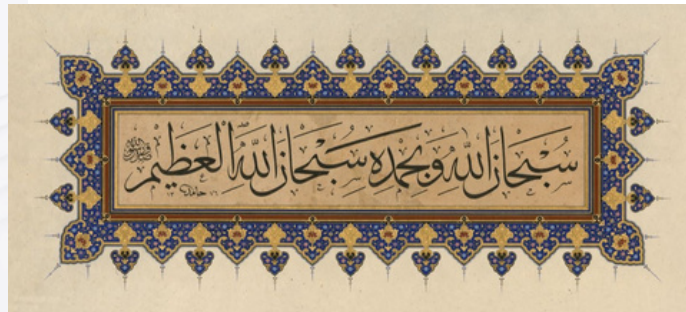 سُبْحَانَ اللّٰهِ وَبِحَمْدِهِ سُبْحَانَ اللّٰهِ الْعَظِيمِ